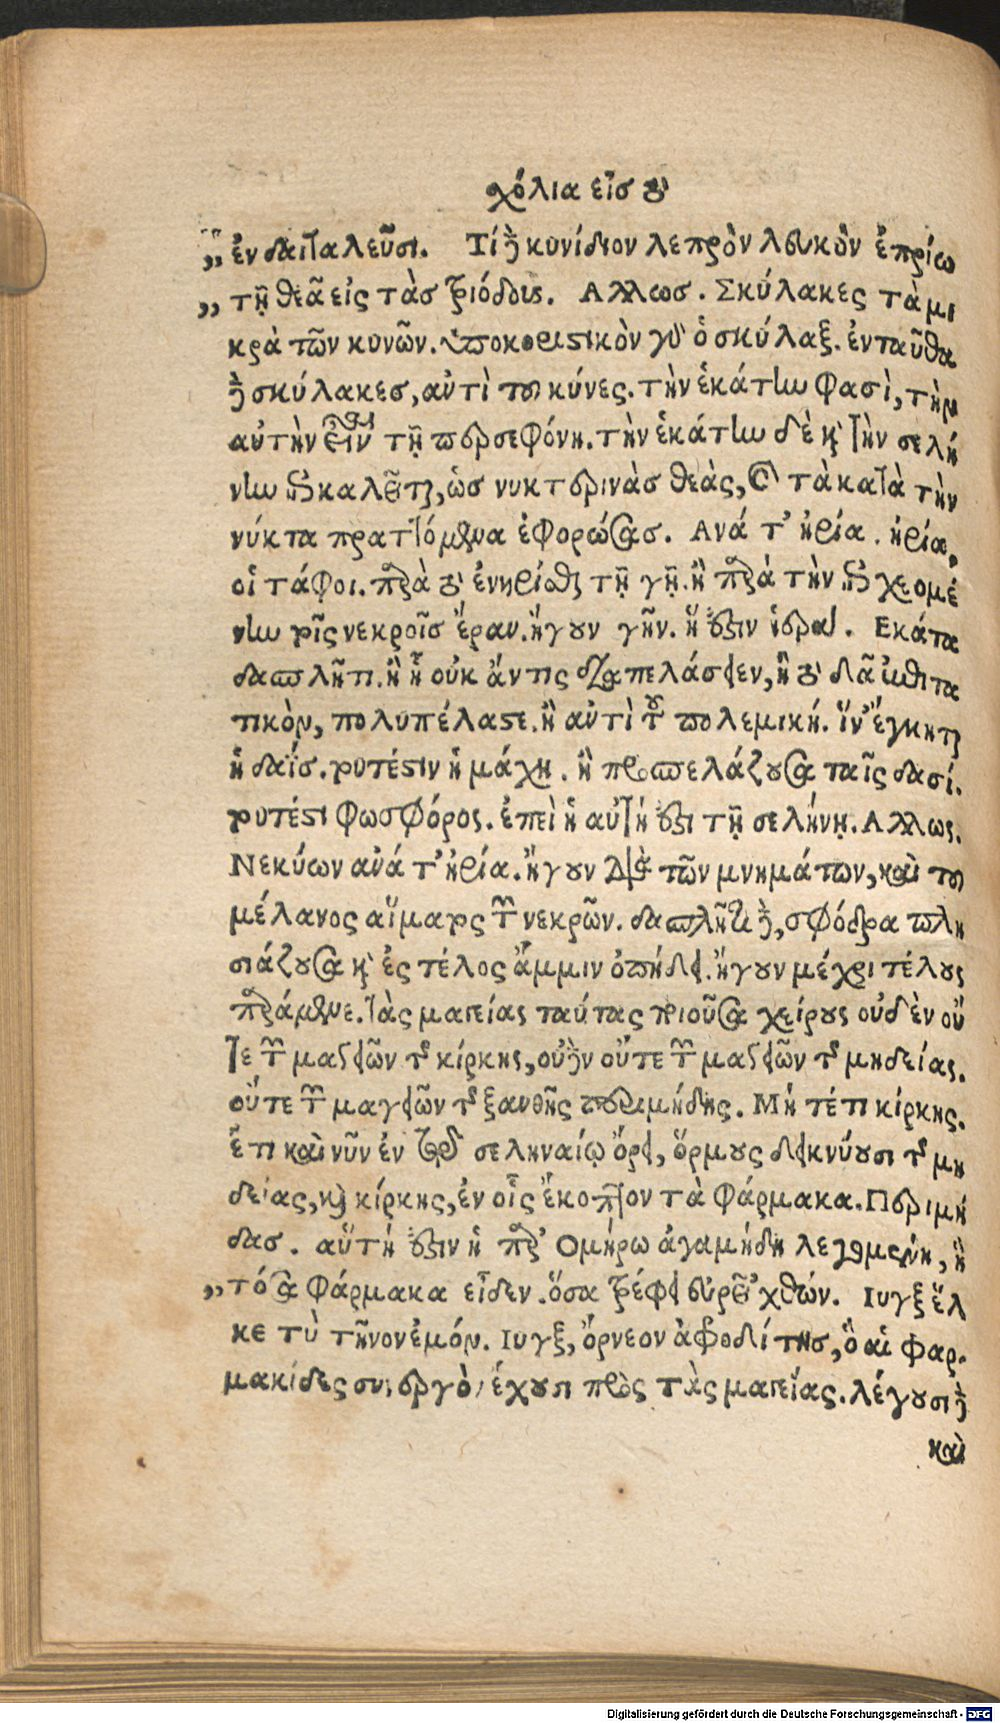 χόλια εἰσ τὸ
„ ἐν δαιταλεῦσι. Τί δὲ κυνίδιον λεπρὸν λευκὸν ἐπρίω
„ τῇ θεᾶ εἰς τὰσ τριόδοις. Αλλωσ. Σκύλακες τὰ μι
κρὰ τῶν κυνῶν. ὑποκοριστικὸν γὰρ ὁ σκύλαξ. ἐνταῦθα
δὲ σκύλακεσ, αὐτὶ του κύνες. τὴν ἑκάτην φασὶ, τὴν
αὐτὴν εἶναι τῇ περσεφόνη. τὴν ἑκάτην δὲ καὶ τὴν σελή
νην ἐπικαλεῖται, ὡσ νυκτερινὰσ θεὰς, καὶ τὰ κατὰ τὴν
νύκτα πραττόμενα ἐφορώσασ. Ανά τ' ἠρία. ἠρία,
οἱ τάφοι. παρὰ τὸ ἐνηρίσθαι τῇ γῇ. ἢ παρὰ τὴν ἐπιχεομέ
νην τοῖς νεκροῖσ ἔραν. ἤγουν γῆν. ἥ ἐστιν ἱεραί. Εκάτα
δασπλῆτι. ἢ ᾗ οὐκ ἄν τις διαπελάσειεν, ἢ τὸ δᾶ ἐπιτα
τικὸν, πολυπέλαστε. ἢ αὐτὶ τοῦ πολεμική. ἵν' ἔγκηται
ἡ δαΐσ. τουτέστιν ἡ μάχη. ἢ προσπελάζουσα ταῖς δασί.
τουτέστι φωσφόρος. ἐπεὶ ἡ αὐτή ἐστι τῇ σελήνῃ. Αλλως.
Νεκύων αὐά τ' ἠρία. ἤγουν διὰ τῶν μνημάτων, καὶ του
μέλανος αἵματος τῶν νεκρῶν. δασπλῆτι δὲ, σφόδρα πλη
σιάζουσα καὶ ἐς τέλος ἄμμιν ὀπήδει. ἤγουν μέχρι τέλους
παράμενε. τὰς μαγείας ταύτας ποιοῦσα χείρους οὐδὲν οὔ
τε τῶν μαγειῶν τῆς κίρκης, οὐδὲν οὔτε τῶν μαγειῶν τῆς μηδείας.
οὔτε τῶν μαγειῶν τῆς ξανθῆς περιμήδης. Μή τέ τι κίρκης.
ἔτι καὶ νῦν ἐν τῷ σεληναίῳ ὄρει, ὅρμους δεικνύουσι τῆς μη
δείας, καὶ κίρκης, ἐν οἷς ἔκοπτον τὰ φάρμακα. Περιμή
δασ. αὕτη ἐστιν ἡ παρ' Ομήρω ἀγαμήδη λεγομένη, ἢ
„ τόσα φάρμακα εἶδεν. ὅσα τρέφει εὐρεῖα χθών. Ιυγξ ἕλ
κε τὺ τῆνον ἐμόν. Ιυγξ, ὄρνεον ἀφροδίτησ, ὃ αἱ φαρ-
μακίδες συνεργὸν ἔχουσι πρὸς τὰς μαγείας. λέγουσι δὲ
καὶ
Digitalisierung gefördert durch die Deutsche Forschungsgemeinschaft - DFG